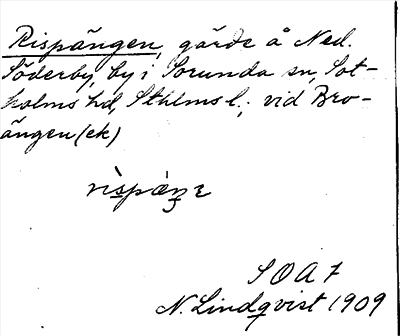 Rispängen, gärde å Ned.
Söderby, by i Sorunda sn, Sot-
holms hd, Sthlms l.; vid Bro-
ängen (ek)
S O A 7
N. Lindqvist 1909